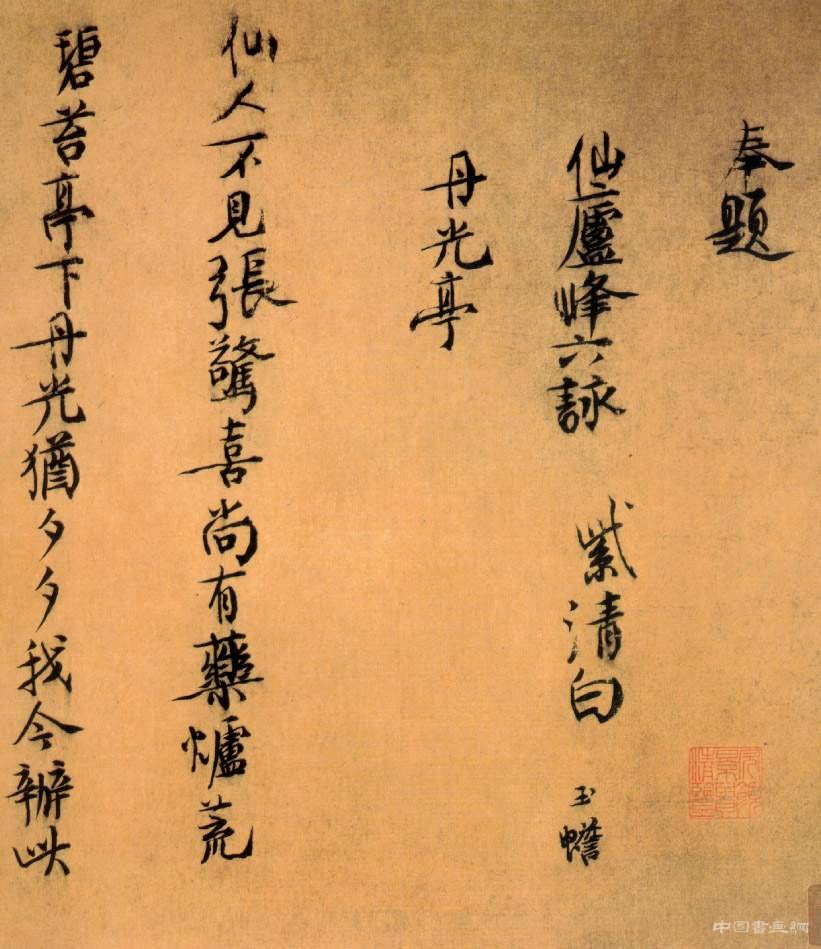 奉題
仙廬峰六詠 紫清白 玉蟾
丹光亭
仙人不見張驚喜尚有藥爐荒
碧苔亭下丹光猶夕夕我今辦此
中国書画網